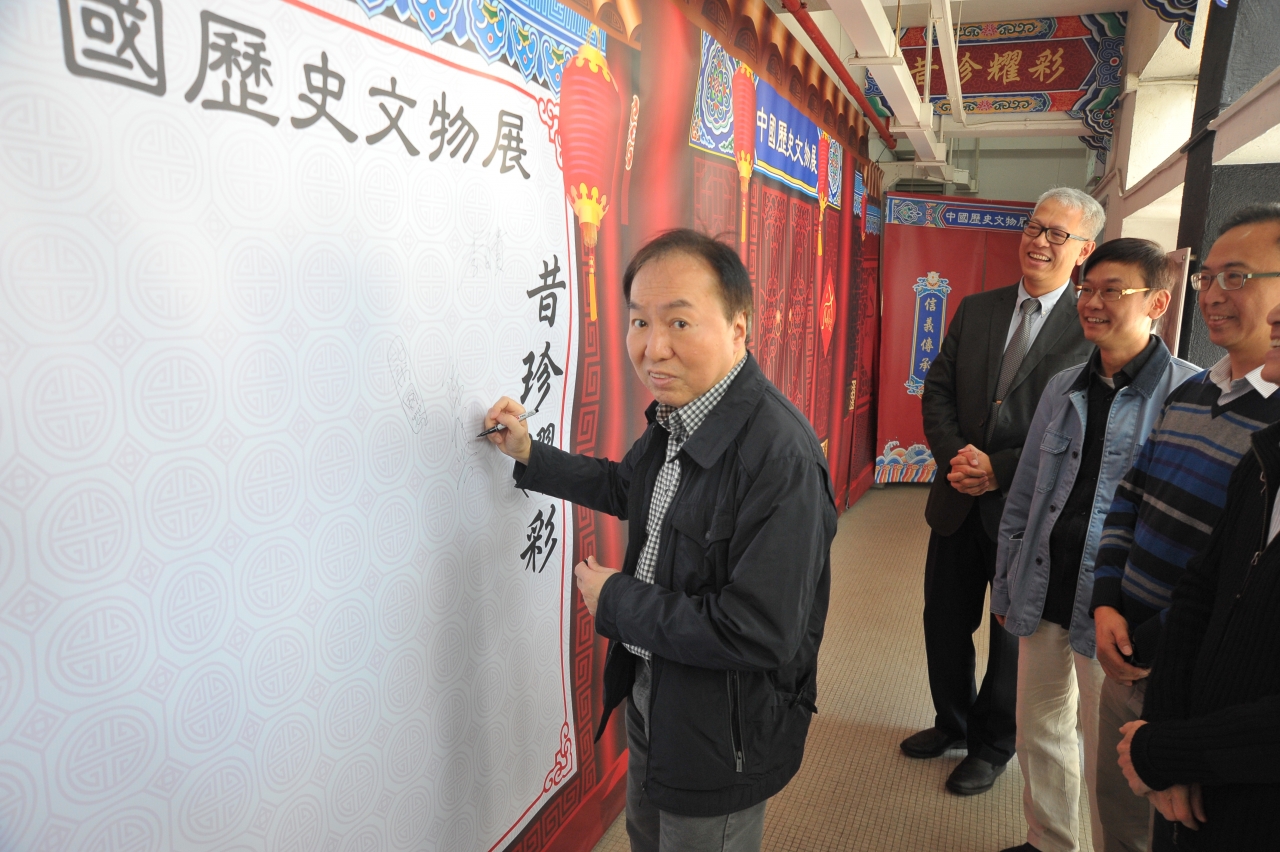 國歷史文物展
昔珍耀彩
中國歷史文物展
昔珍耀彩
中國歷史文物展
信義傳承